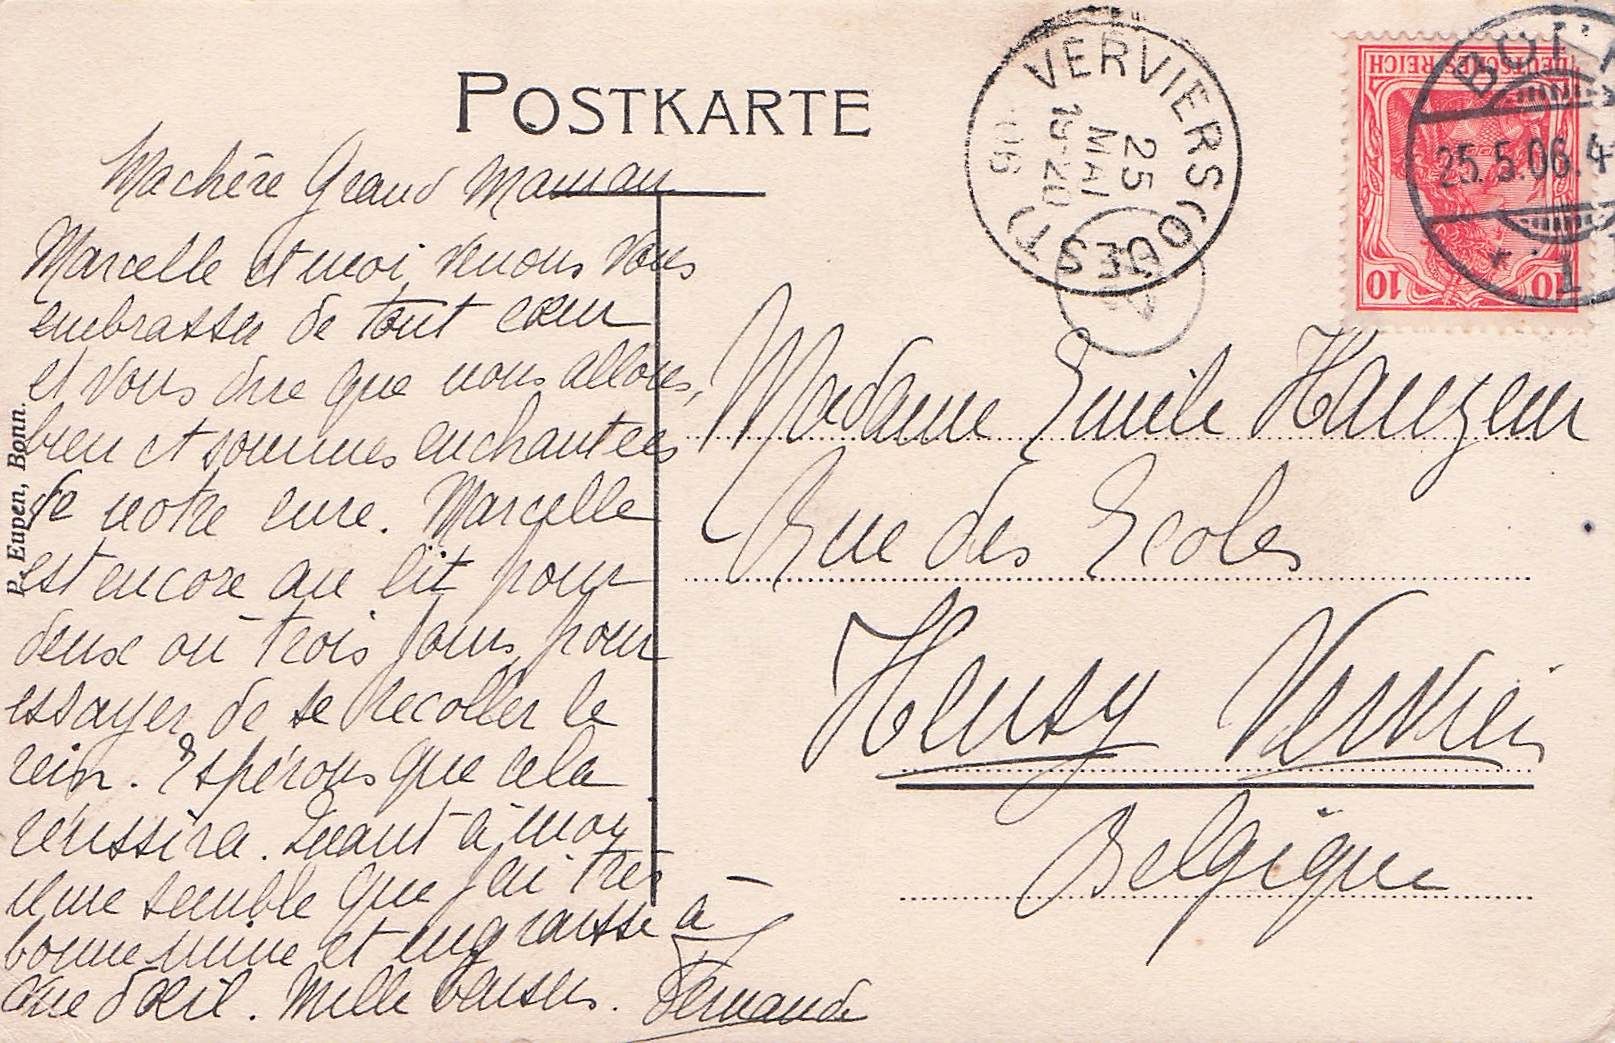 POSTKARTE
Ma chère Grand Maman
Marcelle et moi venons vous
embrasser de tout cœur
et vous dire que nous allons,
bien et sommes enchantées
de notre cure. Marcelle
est encore au lit pour
deux ou trois jours pour
essayer de se recoller le
rein. Espérons que cela
réussira. Quant à moi
il me semble que j'ai très
bonne mine et engraisse à
vue d'œil. Mille baisers. Fernande
P. Eupen, Bonn.
VERVIERS (OUEST)
25
MAI
19-20
06
DEUTSCHES REICH
10 10
25.5.06.4
* 1
Madame Emile Hauzeur
Rue des Ecoles
Heusy Verviers
Belgique